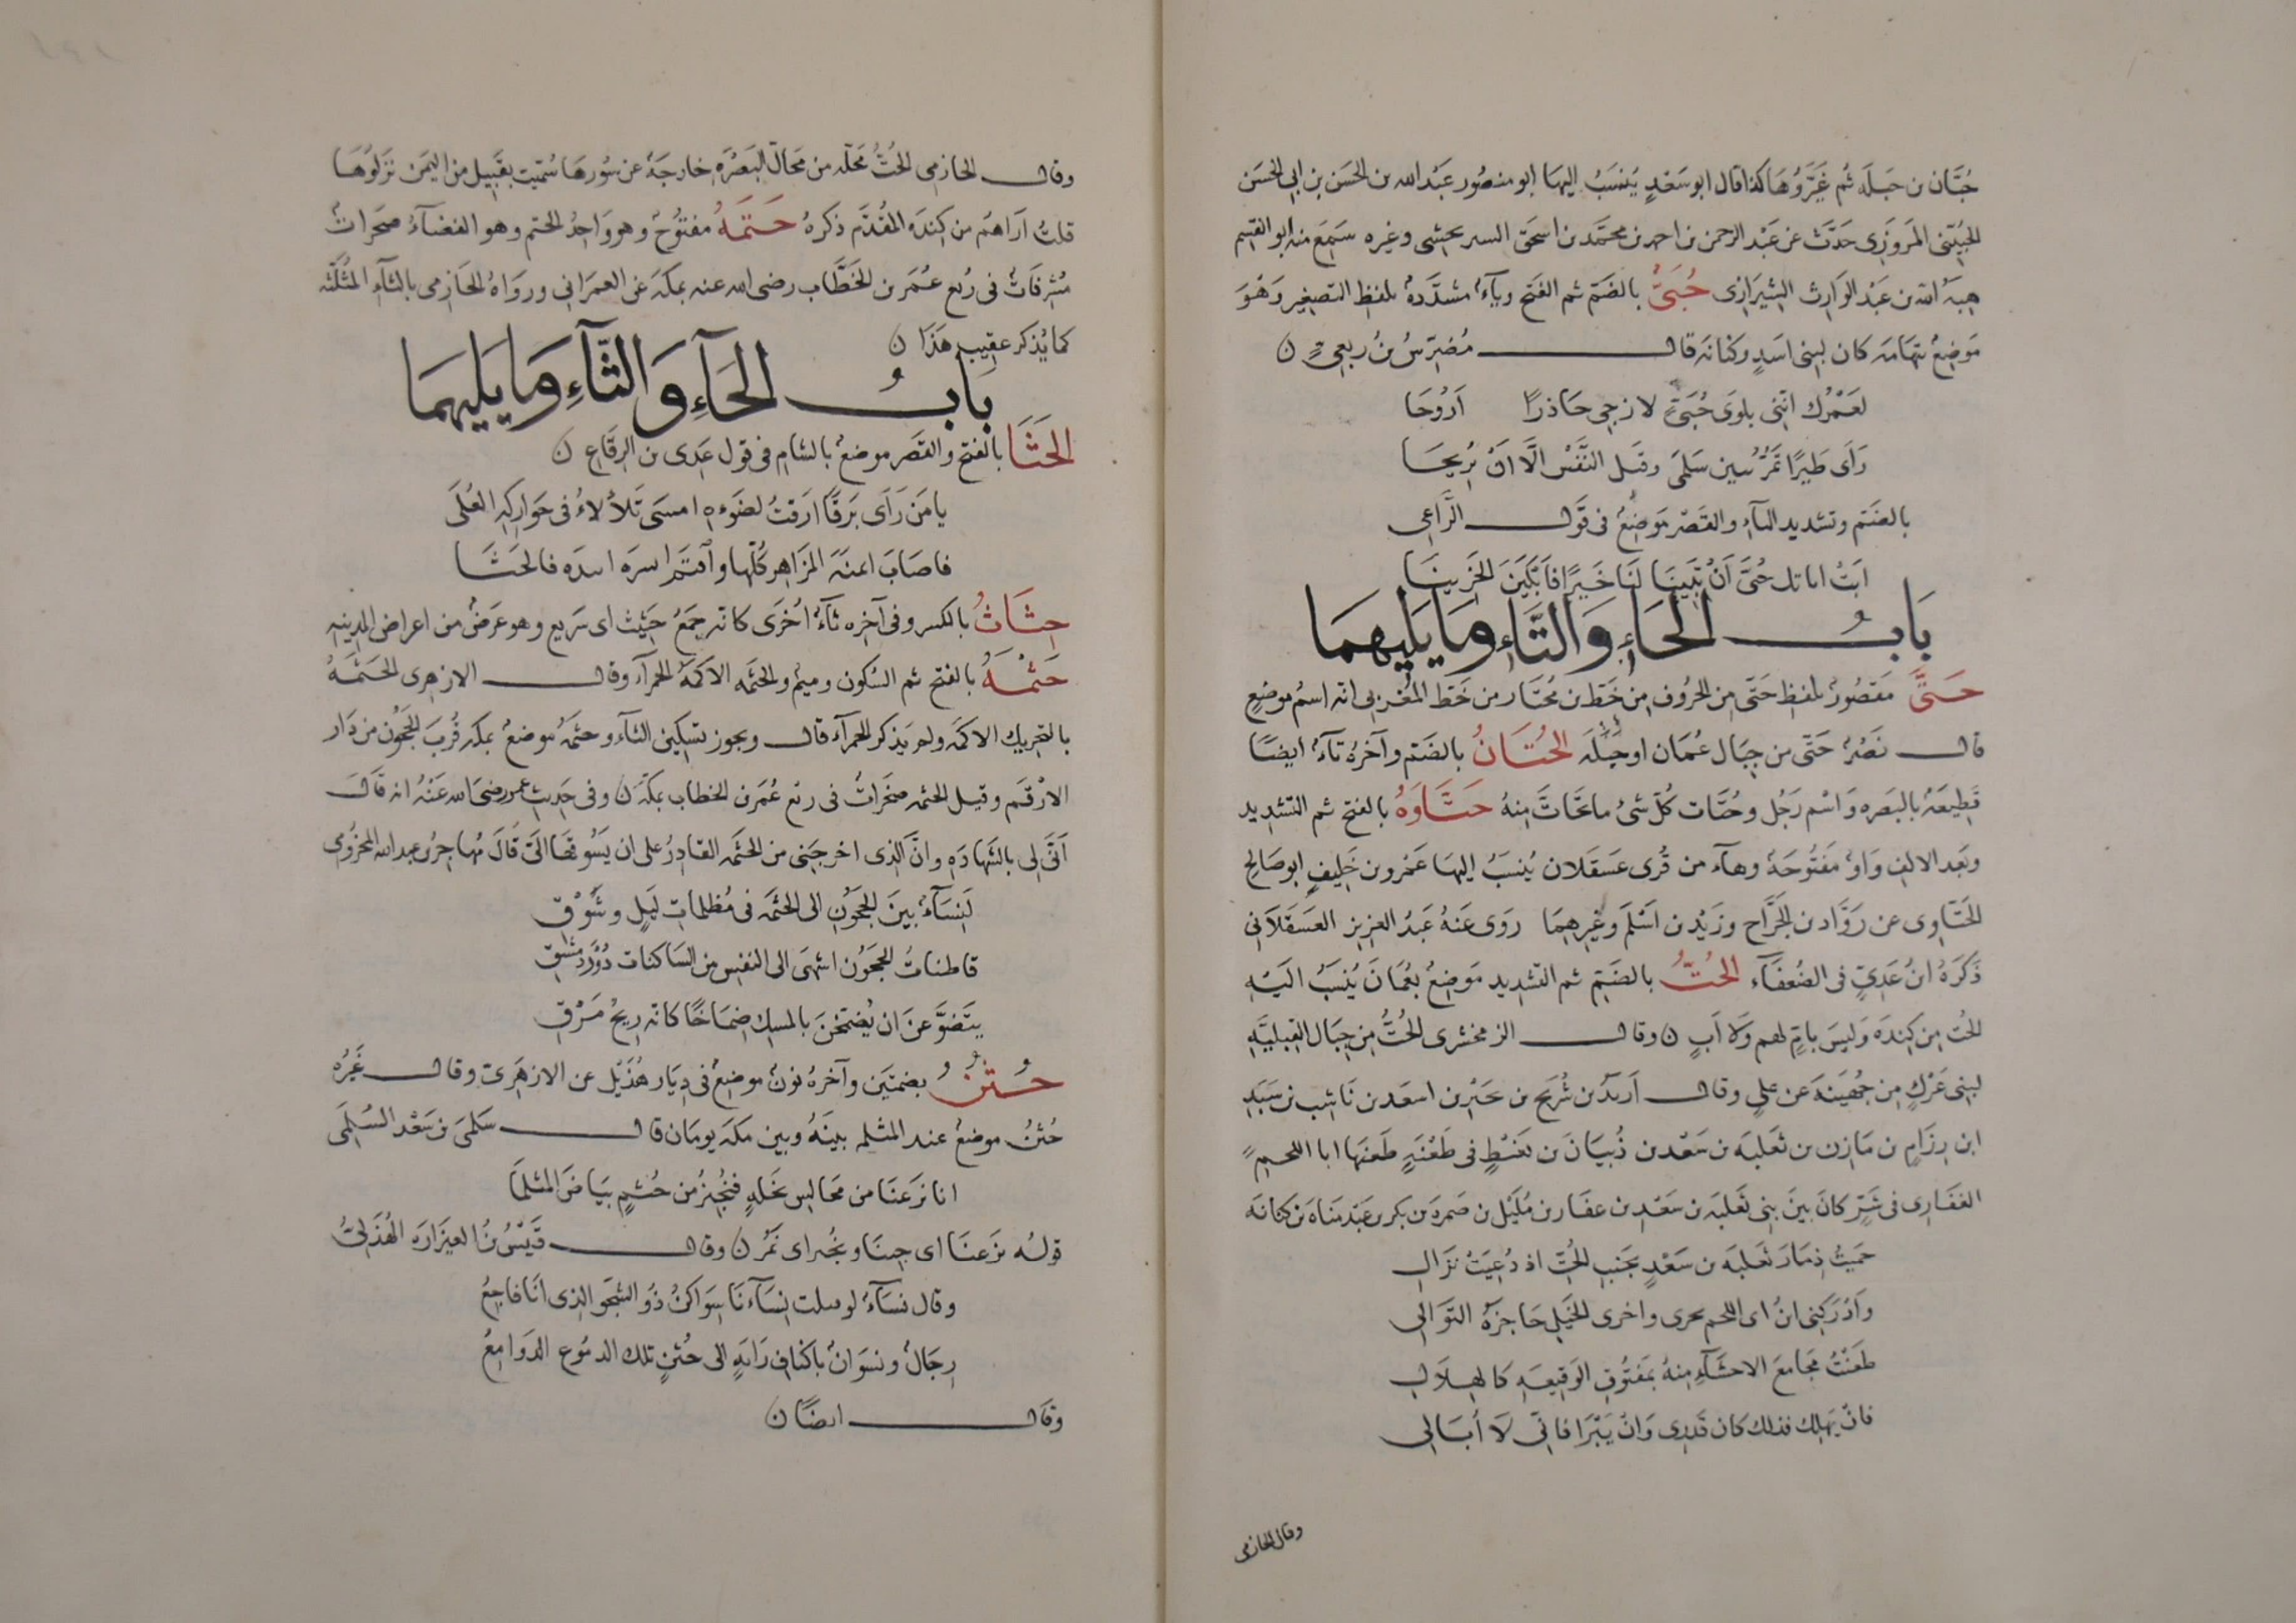 حُبَّان بن جبلة ثم غيّروها كذا قال ابو سَعْدٍ يُنسَبُ اليها ابو منصُور عَبْد الله بن الحسَن بن ابى الحسَن
المَروَزِى حَدّث عن عَبْد الرحمن بن احمد بن محمّد بن اسحق وغيره سَمِعَ منه ابو القسِم
هِبَةُ الله بن عَبْد الوَارِث الشيرَازِى حُبَىُّ بالضَم ثم الفَتح وياءٌ مشدَّدةٌ بلفظ التصغير وَهُوَ
مَوضِعٌ بتِهَامَة كان لبنى اسَدٍ وكنانة قال مُضَرّسُ بنُ ربعىٍّ ن
لعَمْرُك انّنى بلوَى حُبَىٍّ لارجى حَاذرًا اَرُوحَا
رَأى طَيرًا تَمرُّ بين سَلمَى وقيل النَّفْس الّا ان يُريحَا
بالضَم وتشديد الباء والقصْر مَوضعٌ فى قَول الرَّاعى
اَبَتْ حُبَّى اَنْ تبينَا لنَا خَبرًا فَابكَينَ الحَزينَا
بَابُ الحَاءِ وَالتَّاءِ وَمَا يَليهمَا
حَتَّى مَقصُورٌ بلفظ حَتّى مِن الحرُوف مِن خَط بن مُختار من خَط المغربى انه اسمُ موضعٍ
قال نَصْرٌ حَتّى من جبَال عُمَان اوجبلَة الحُتَاتُ بالضَم وآخرهُ تآءٌ ايضًا
قَطِيعَةٌ بالبَصره وَاسْم رَجُل وحُتَات كُل شئ ماتحَاتّ مِنهُ حَتَّاوَهُ بالفتح ثم التشديد
وبَعد الالف وَاوٌ مَفتُوحَةٌ وهاء من قُرى عَسقَلان يُنسَبُ اليهَا عَمرو بن خَليفٍ ابو صَالح
الحَتّاوى عن رَوَّاد بن الجَرَّاح وزَيْد بن اَسْلَم وغيرهِمَا روَى عَنهُ عَبْدُ العزيز العَسقَلاَنى
ذَكَرَهُ ابنُ عَدِىٍّ فى الضُعَفَاء الحُتُّ بالضَم ثم التشديد مَوضِعٌ بعُمَانَ يُنسَبُ اليْهِ
الحُت مِن كِندَة وَليسَ بامٍّ لهم وَلا اَبٍ ن وقال الزمخشرى الحُتُّ مِن جِبَال القبليَّةِ
لبنى عَرَكٍ مِن جُهَينة عن علىٍ وقال اَربَدُ بن شُرَيح بن بن اسعَد بن نَاشِب بن سَبَدِ
ابن رِزَامٍ بن مَازن بن ثعَلبَة بن سَعْد بن ذُبيَانَ بن بغيض فى طَعْنَةٍ طَعَنهَا ابا اللحم
الغفَارى فى شَرٍّ كانَ بينَ بنى ثَعلبَة بن سَعْد بن غفار بن مُلَيْل بن ضمرة بن بكر بن عَبْد مَنَاة بن كنانَة
حَمَيتُ ذِمَارَ ثعلبَة بن سَعْدٍ بجَنبِ الحُتّ اذ دُعِيَتْ نَزَالِ
وَاَدْرَكَنِى ابنُ ابى اللحم يجرى واخرى الخَيل حَاجِزَةُ التوَالِى
طَعَنْتُ مَجَامعَ الاحشَاءِ مِنهُ بمَفتُوقِ الوَقيعَهِ كَالهِلَالِ
فان يَهْلِك فذلك كان قَدرِى وَانْ يَبْرَا فانّى لَا اُبَالِى
وقال الحازمى
وقال الحازمى الحُتُّ محَلّه من محَالّ البَصْرَة خارجَة عن سُورهَا سُمّيت بقَبيل من اليمَن نزَلوهَا
قلتُ اَرَاهُم من كِندَة المُقدَّم ذكرهُ حَتمَهُ مفتوُحٌ وهو وَاحِدُ الحتم وهو القضآءُ صخَرات
مُشرِفَاتٌ فى رَبع عُمَر بن الخَطَّاب رضى الله عنه بمكَة عن العمرَانى ورَواهُ الحَازمى بالثآءِ المثُلّثه
كما يُذكر عقِيب هَذَا ن
بَابُ الحَآءِ وَالثَّآءِ وَمَا يَليهمَا
الحَثَا بالفتح والقَصَر موضعٌ بالشام فى قول عَدِى بن الرقَاع ن
يا مَن رَأَى بَرقًا ارَقتُ لضَوءه امسَى تَلأْلأءُ فى حَوارِكه العُلَى
فاصَابَ ايمنَهُ المزَاهر كُلّها واقتَم ايسره فالحَثَا
حِثَاثُ بالكسر وفى آخره ثآءٌ اُخرَى كانه جمَعُ حَثِيث اى سَريع وهو عَرَضٌ من اعراض المدينه
حَثْمَهُ بالفتح ثم السُكون وميم والحثمه الاكمَةُ الحمرآء وقال الازهرى الحَثَمَةُ
بالتحريك الاكمَة ولم يَذكر الحمرآء قال ويجوز تسكين الثآء وحثمَةُ موضعٌ بمكة قُربَ الحَجُون من دَار
الارقَم وقيل الحثمه صخَراتٌ فى ربع عُمَر بن الخطاب بمكة ن وفى حَديث عمر رضى الله عَنْهُ انه قَالَ
اَنّى لى بالشهادَهِ وانّ الّذى اخرجَنى من الحثمَه القَادِرُ على ان يَسُوقَهَا الىّ قَالَ مُهاجرُ بن عبد الله المخزومى
لَنِسَاءٌ بينَ الحَجُونِ الى الحثمَه فى مُظلماتِ لَيلٍ وشَرْقِ
قاطنات الحَجُون اشهَى الى النفس من السَاكنات دُورَ دِمَشْقِ
يتَضَوَّعنَ ان تَضمّخنَ بالمسِك ضِمَاخًا كانه رِيحُ مَرْقِ
حُثُنٌ بضمتَين وآخرهُ نونٌ موضِعٌ فى دِيَار هُذَيْل عن الازهَرى وقال غَيْرُه
حُثنُ موضعٌ عند المثلم بينَهُ وبين مكة يومَان قال سَلمَى بن سَعْد السُلمَى
انا نزعنَا من مَجَالِس نخلَةٍ فنجُيزُ من حُثنٍ بيَاضَ المثلمَا
قولهُ نزعنَا اى جئنَا ونجُيز اى نمَرُ ن وقال قَيْسُ بنُ العيزَارَه الهُذَلىُّ
وقال نسَآءٌ لو قتلت نِسَآءنَا سِوَاكنَّ ذُو الشجَو الذى انَا فاجعُ
رِجَالٌ ونسوَانٌ باكنَافِ رَايَةٍ الى حُثنٍ تلك الدموُع الدوَامِعُ
وقال ايضًا ن